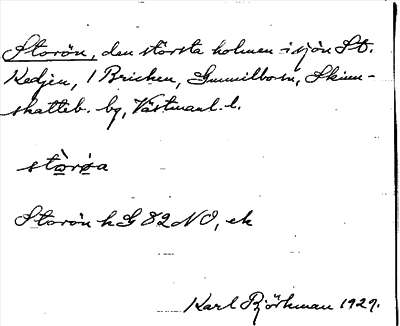 Storön, den största holmen i sjön St.
Kedjen, i Bricken, Gunnilbom, Skinn-
skatteb. bg, Västmanl. l.
stòrøa
Storön h G 82 NO, ek
Karl Björkman 1927.